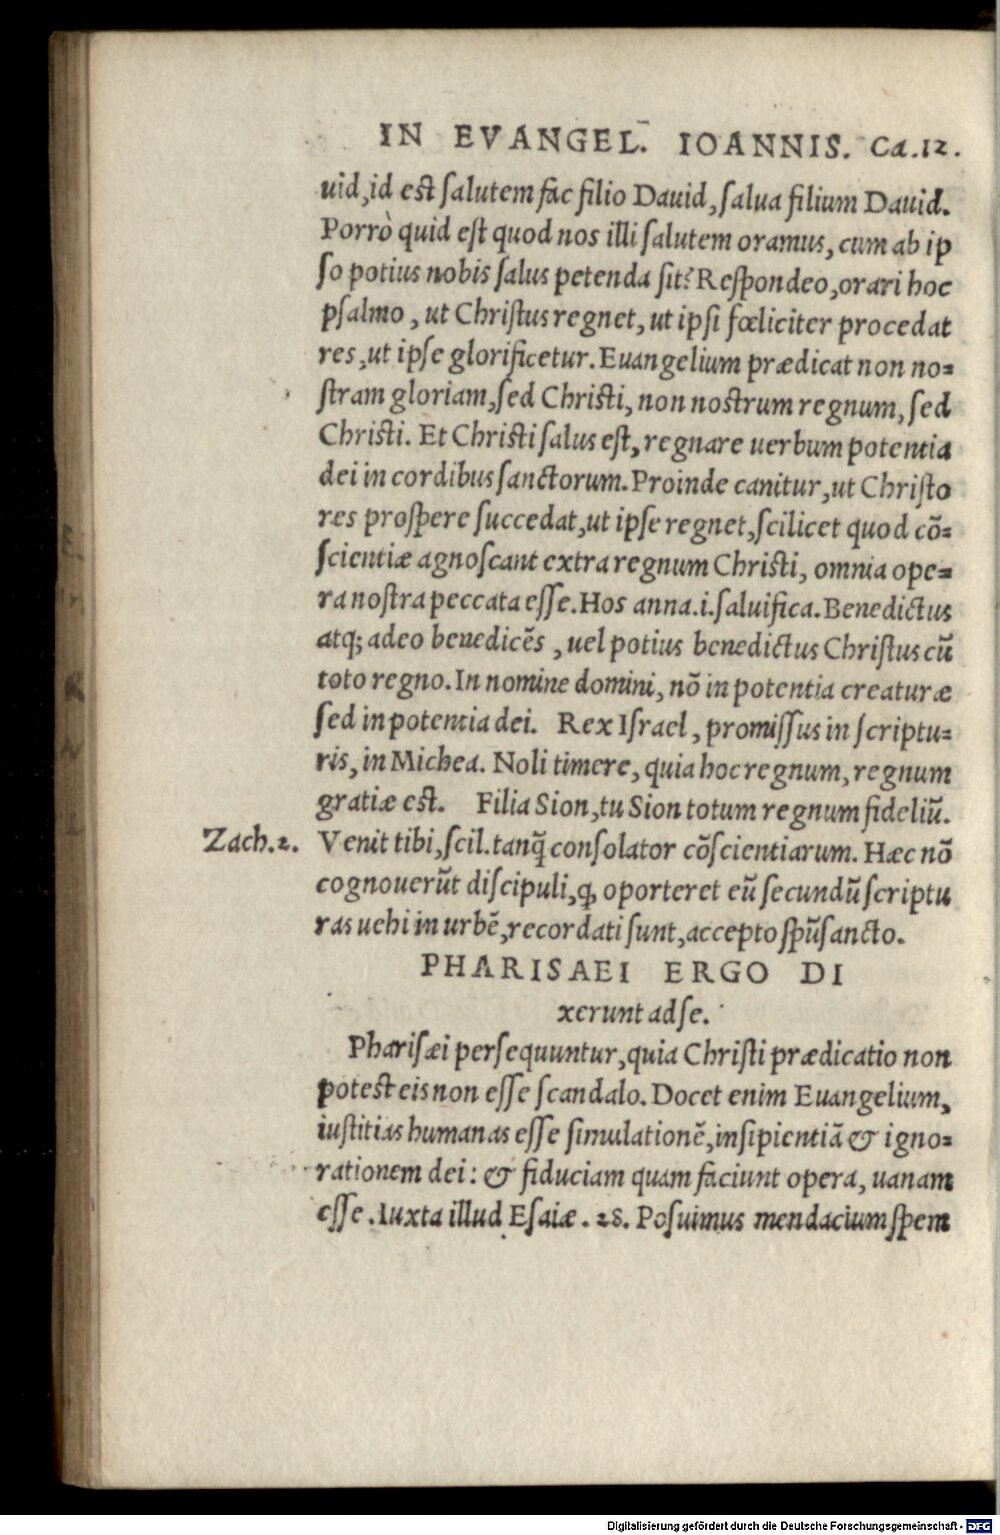 IN EVANGEL̄. IOANNIS. Ca.12.
uid, id est salutem fac filio Dauid, salua filium Dauid.
Porrò quid est quod nos illi salutem oramus, cum ab ip
so potius nobis salus petenda sit? Respondeo, orari hoc
psalmo, ut Christus regnet, ut ipsi fœliciter procedat
res, ut ipse glorificetur. Euangelium prædicat non no=
stram gloriam, sed Christi, non nostrum regnum, sed
Christi. Et Christi salus est, regnare uerbum potentia
dei in cordibus sanctorum. Proinde canitur, ut Christo
res prospere succedat, ut ipse regnet, scilicet quod cō=
scientiæ agnoscant extra regnum Christi, omnia ope=
ra nostra peccata esse. Hos anna. i. saluifica. Benedictus
atq; adeo benedicēs, uel potius benedictus Christus cū
toto regno. In nomine domini, nō in potentia creaturæ
sed in potentia dei. Rex Israel, promissus in scriptu=
ris, in Michea. Noli timere, quia hoc regnum, regnum
gratiæ est. Filia Sion, tu Sion totum regnum fideliū.
Zach.2. Venit tibi, scil. tanq̄ consolator cōscientiarum. Hæc nō
cognouerūt discipuli, ꝙ oporteret eū secundū scriptu
ras uehi in urbē, recordati sunt, accepto spūsancto.
PHARISAEI ERGO DI
xerunt ad se.
Pharisæi persequuntur, quia Christi prædicatio non
potest eis non esse scandalo. Docet enim Euangelium,
iustitias humanas esse simulationē, insipientiā & igno=
rationem dei: & fiduciam quam faciunt opera, uanam
esse. Iuxta illud Esaiæ. 28. Posuimus mendacium spem
Digitalisierung gefördert durch die Deutsche Forschungsgemeinschaft - DFG